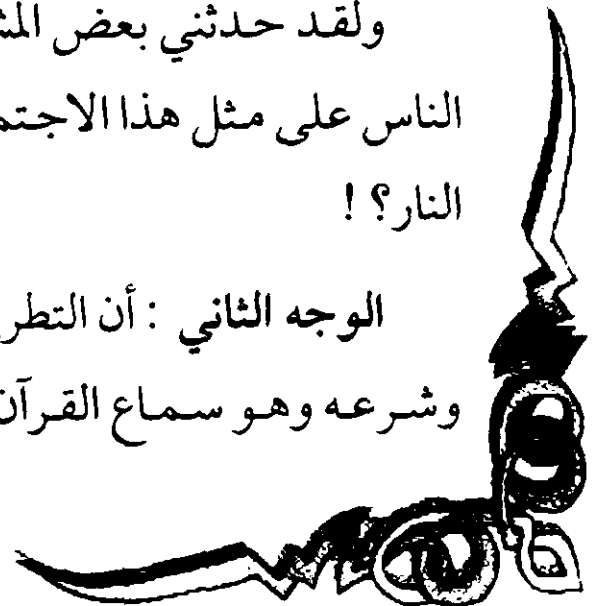 ولقد حدثني بعض المش
الناس على مثل هذا الاجتم
النار؟ !
الوجه الثاني : أن التطر
وشرعه وهو سماع القرآن